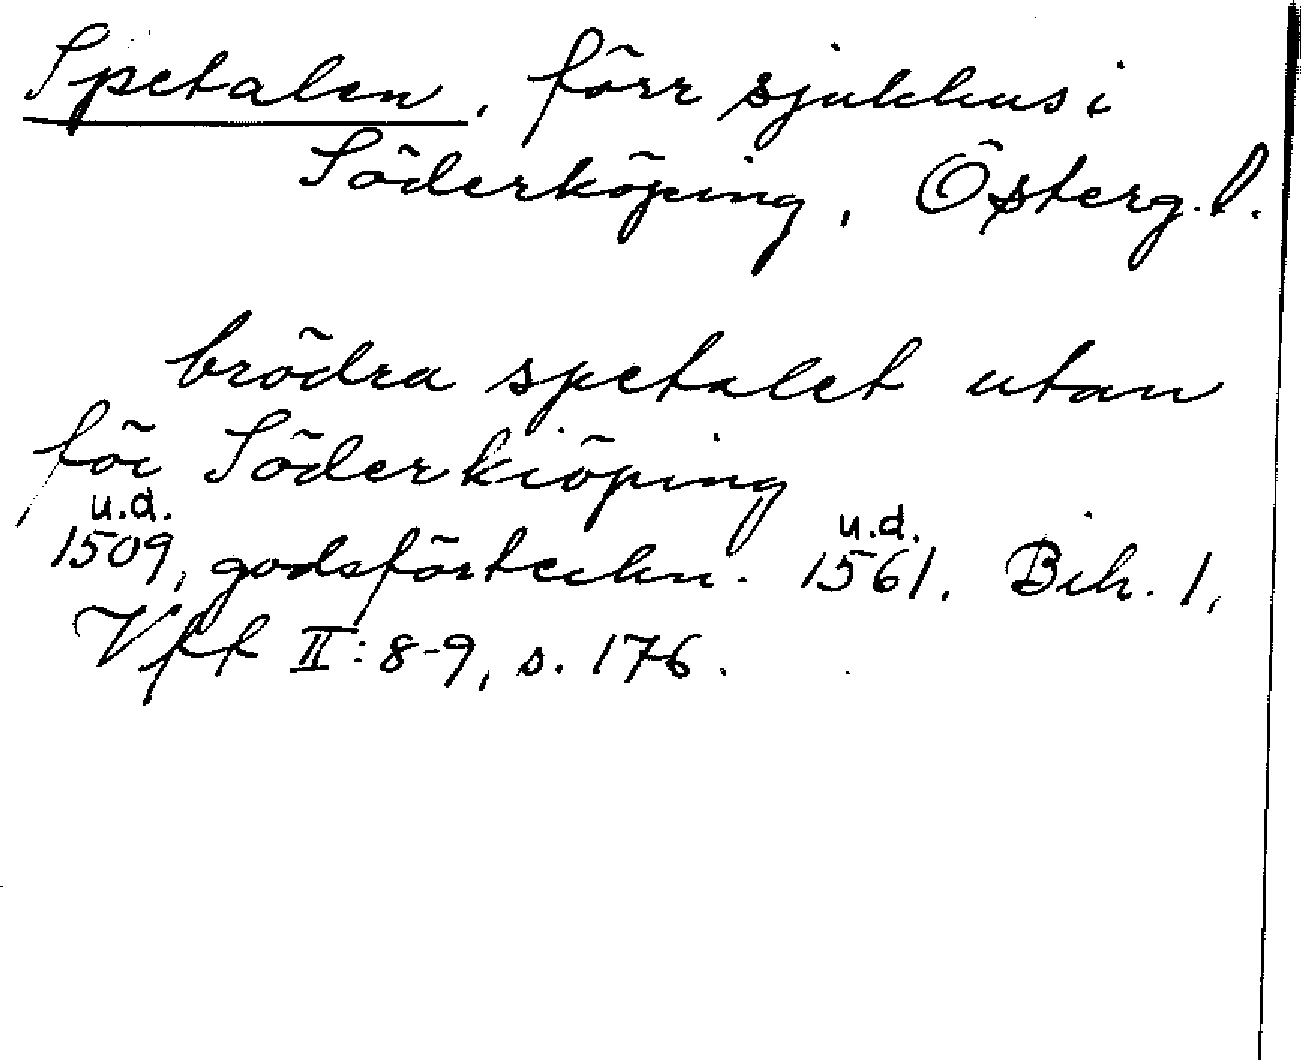 Spetalen, förr sjukhus i
Söderköping, Österg. l.
brödra spetalet utan
för Söderkiöping
u.d. u.d.
1509, godsförteckn. 1561. Bih. 1,
Vff II: 8-9, s. 176.